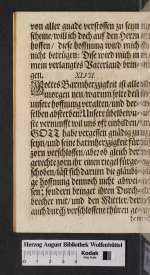 von aller gnade verstossen zu seyn
scheine/ will ich doch auf den Herrn
hoffen/ diese hoffnung wird mich
nicht betrigen: Dise wird mich in
mein verlangtes Vaterland brin-
gen.
XLVII.
GOttes Barmhertzigkeit ist alle
morgen neu/ warum solte dann
unsere hoffnung veralten/ und der-
selben absterben? Unser
vernunfft will uns oft einbilden/
GOTT habe vergessen gnädig zu
seyn/ und seine barmhertzigkeit für
zorn verschlossen/ aber ob gleich der
gerechte gott ihr einen rigel fürge-
schoben/ läst sich darum die gläubi-
ge hoffnung dennoch nicht abwei-
sen; sondern bringet ihren Durch-
brecher mit/ und den Mittler/ der
auch durch verschlossene thüren
Herzog August Bibliothek Wolfenbüttel